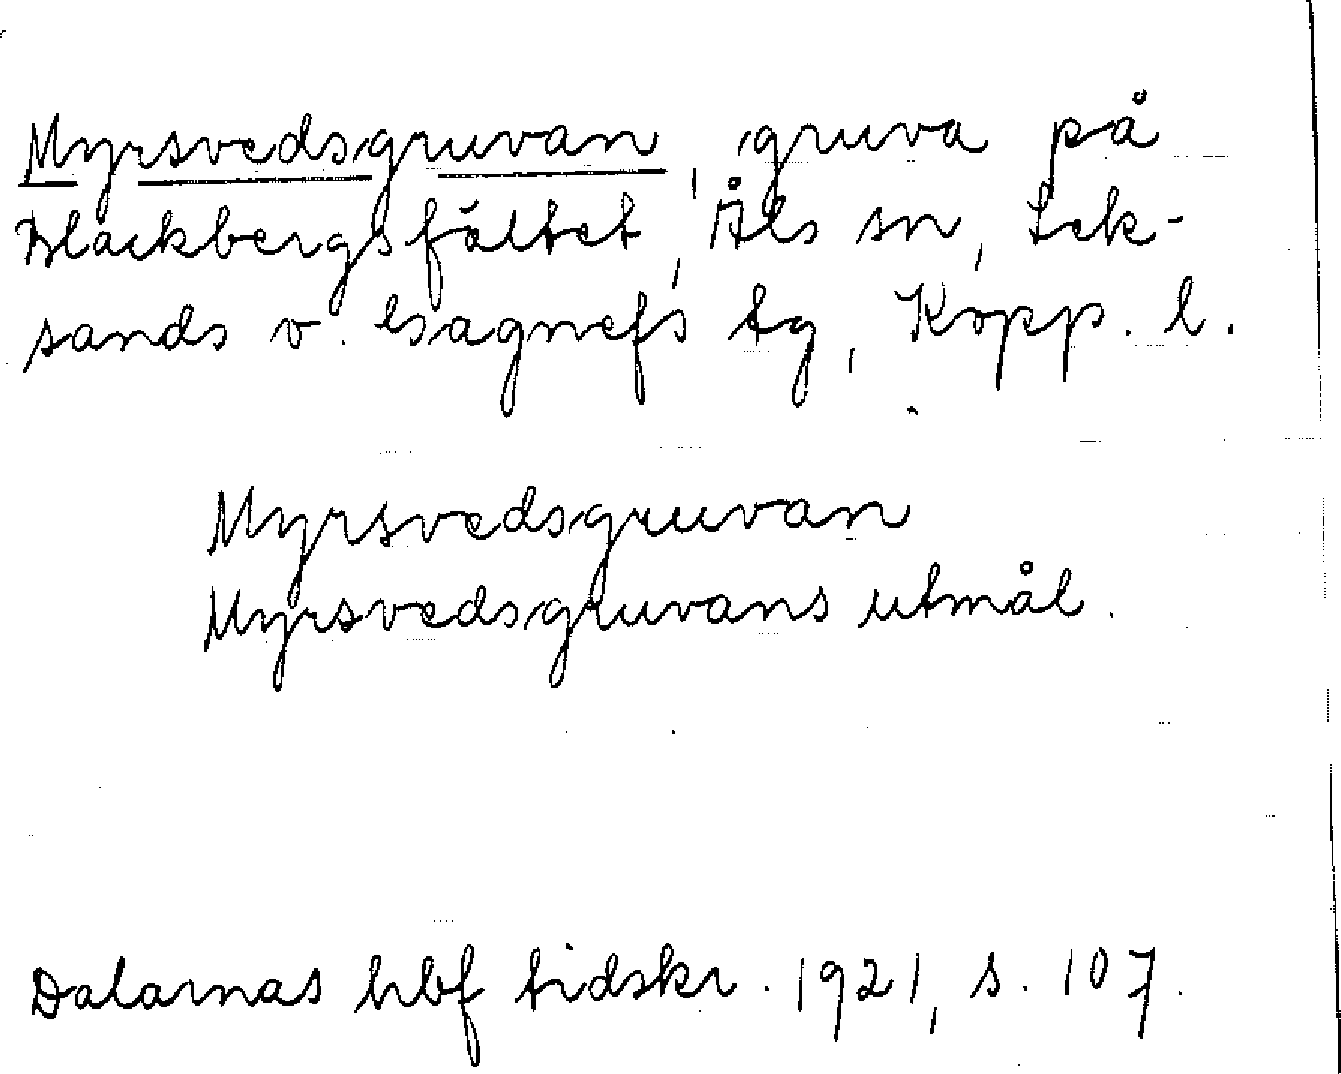 Myrsvedsgruvan, gruva på
Bläckbergsfältet, Åls sn, Lek-
sands o. Gagnefs tg, Kopp. l.
Myrsvedsgruvan
Myrsvedsgruvans utmål.
Dalarnas hbf tidskr. 1921, s. 107.